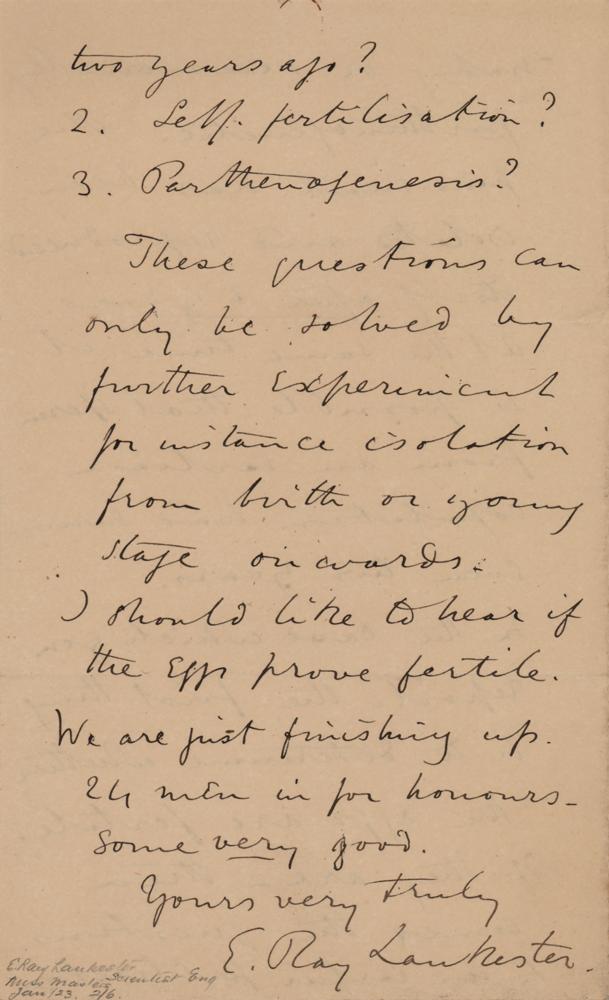 two years ago?
2. Self. fertilisation?
3. Parthenogenesis?
These questions can
only be solved by
further Experiment
for instance isolation
from birth or young
stage onwards.
I should like to hear if
the Eggs prove fertile.
We are just finishing up.
24 men in for honours -
some very good.
Yours very truly
E. Ray Lankester.
E Ray Lankester
Scientist Eng
Miss Masters
Jan/23. 2/6.